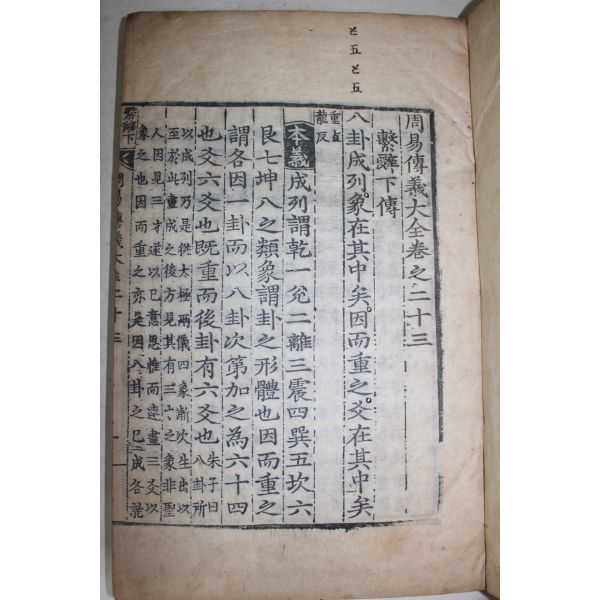 と五と五
周易傳義大全卷之二十三
繫辭下傳
八卦成列。象在其中矣。因而重之。爻在其中矣
重直
龍反
本義 成列謂乾一兌二離三震四巽五坎六
艮七坤八之類象謂卦之形體也因而重之
謂各因一卦而以八卦次第加之為六十四
也爻六爻也既重而後卦有六爻也
朱子曰
八卦所
以成列乃是從太極兩儀四象漸次生出以
至於此畫成之後方見其有三才之象非聖
人因見三才遂以己意思惟而連畫三爻以
象之也因而重之亦是因八卦之已成各就
繫辭下
周易傳義大全卷二十三